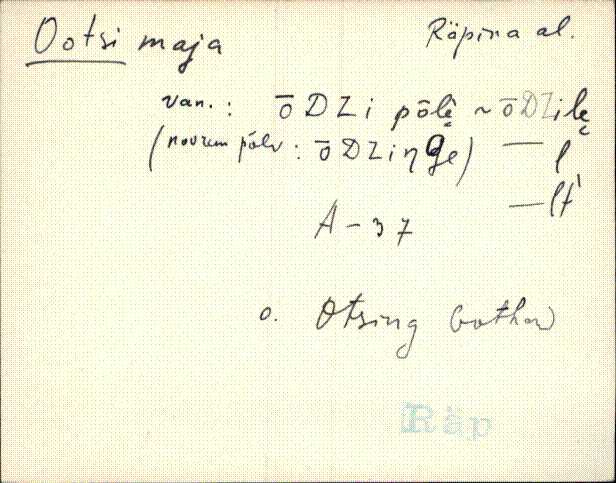 Ootsi maja Räpina al.
van.: ōDZi pōlę̀ ~ ōDZilę
(noorem põlv : ōDZiŋGe) — l
— lt'
A-37
o. Otsing
Räp